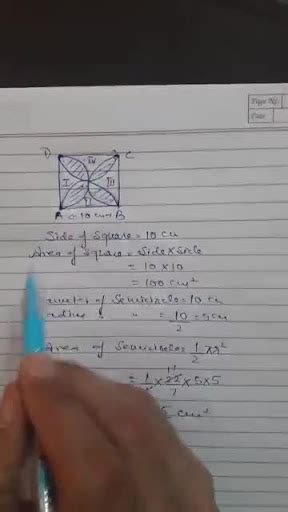 Page No.
Date
D C
IV
I III
II
A ← 10 cm → B
Side of Square = 10 cm
Area of Square = Side × Side
= 10 × 10
= 100 cm²
of Semicircle = 10 cm
radius " = 10/2 = 5 cm
Area of Semicircle = 1/2 πr²
= 1/2 × 22/7 × 5 × 5
cm²